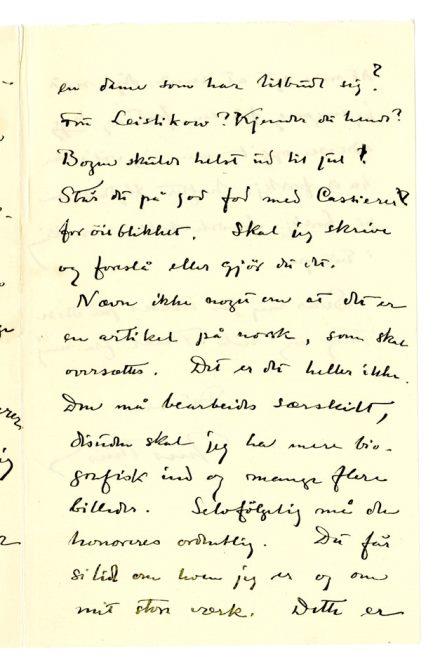 en dame som har tilbudt sig?
Fru Leistikow? Kjender du hende?
Bogen skulde helst ud til jul!
Står du på god fod med Cassierer
for öieblikket. Skal jeg skrive
og foreslå eller gjör du det.
Nævn ikke noget om at det er
en artikel på norsk, som skal
oversættes. Det er det heller ikke.
Den må bearbeides særskilt,
desuden skal jeg ha mere bio-
grafisk ind og mange flere
billeder. Selvfölgelig må den
honoreres ordentlig. Du får
si lidt om hvem jeg er og om
mit store værk. Dette er